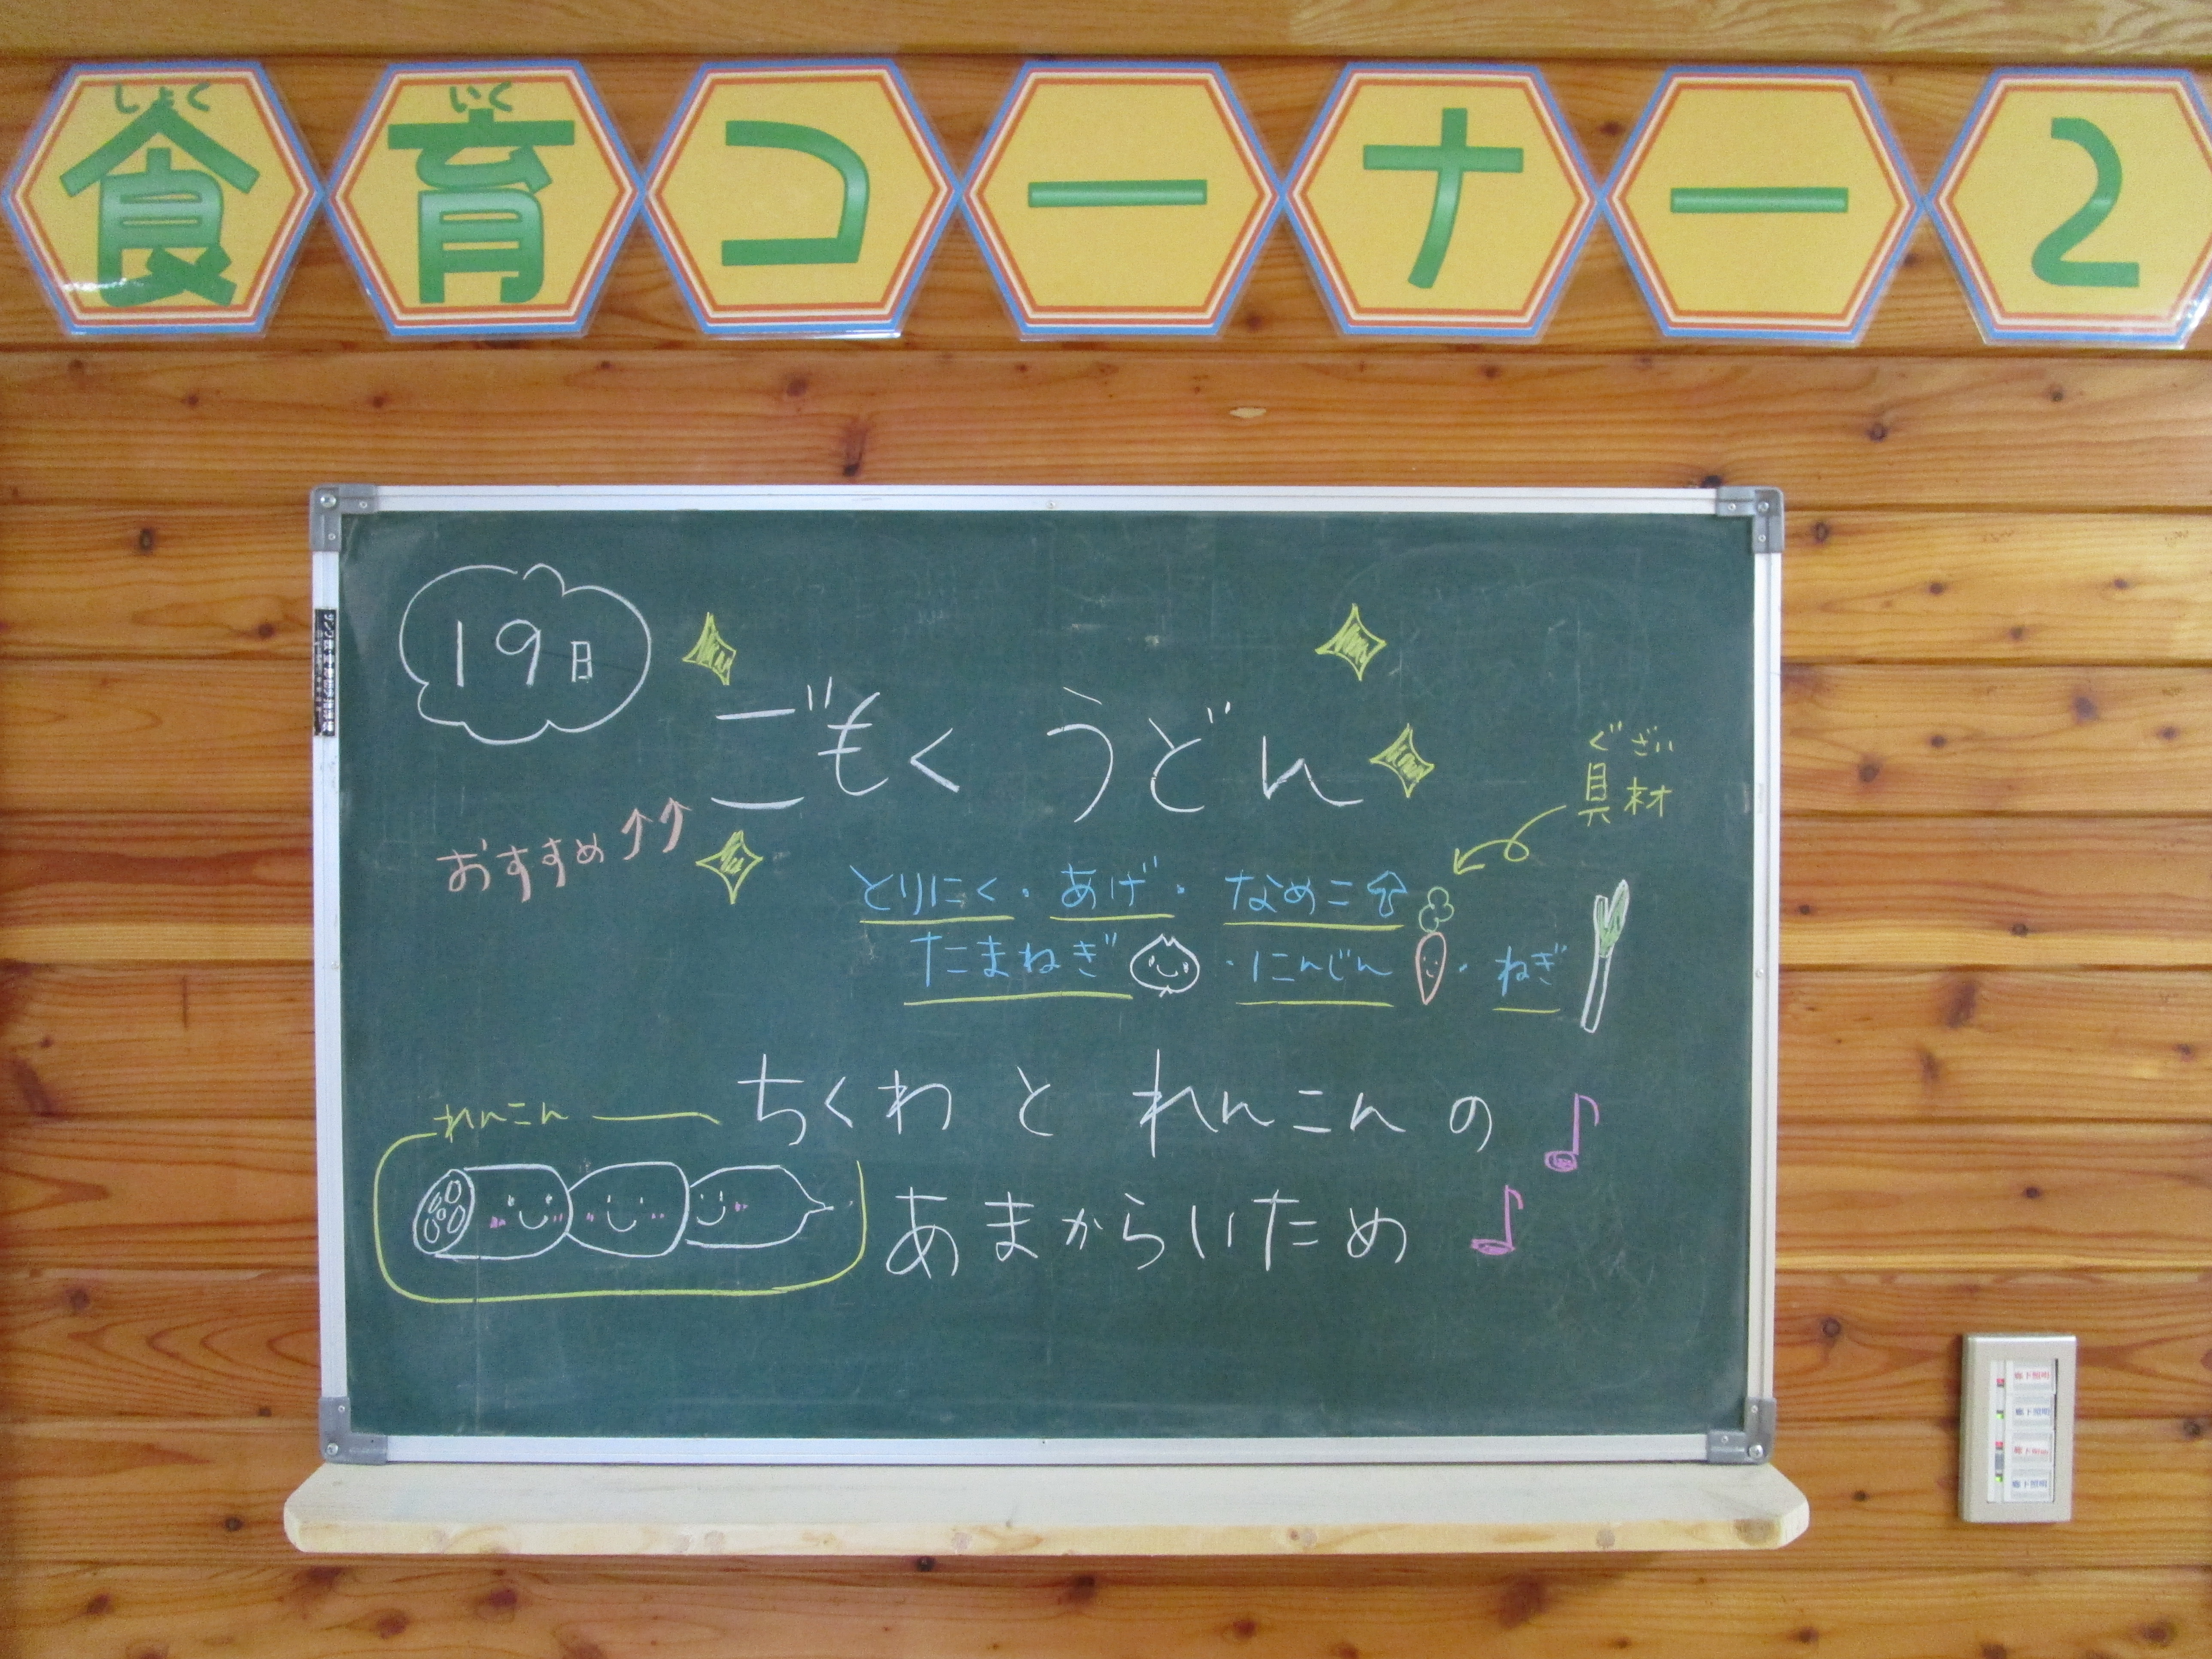 しょく いく
食育コーナー2
19日
ごもく うどん
おすすめ↑↑
ぐざい
具材
とりにく・あげ・なめこ
たまねぎ・にんじん・ねぎ
ちくわ と れんこん の
あまからいため
れんこん
廊下照明
廊下照明
廊下照明